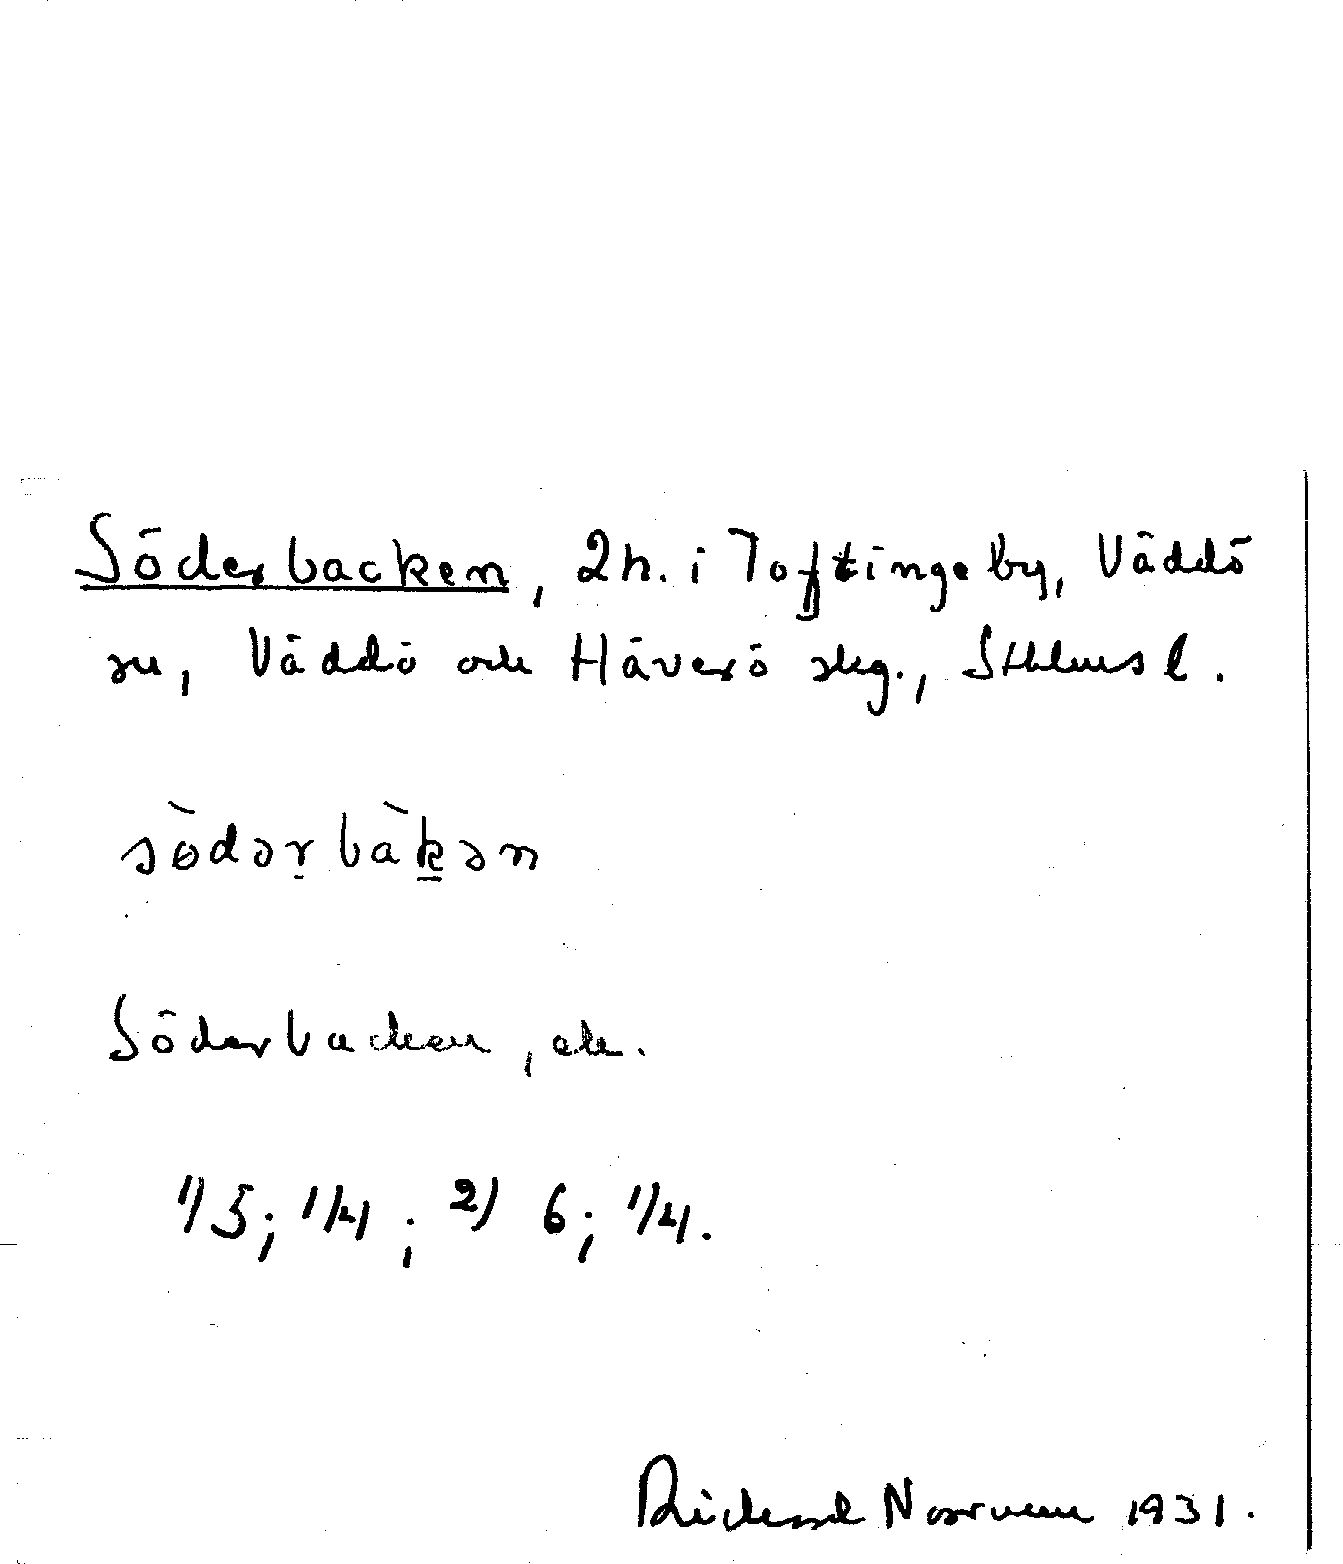 Söderbacken, 2 h. i Toftinge by, Väddö
sn, Väddö och Häverö skg., Sthlms l.
sö̀dərbàk̲ən
Söderbacken, ek.
1) 5; 1/4; 2) 6; 1/4.
Richard Norrman 1931.